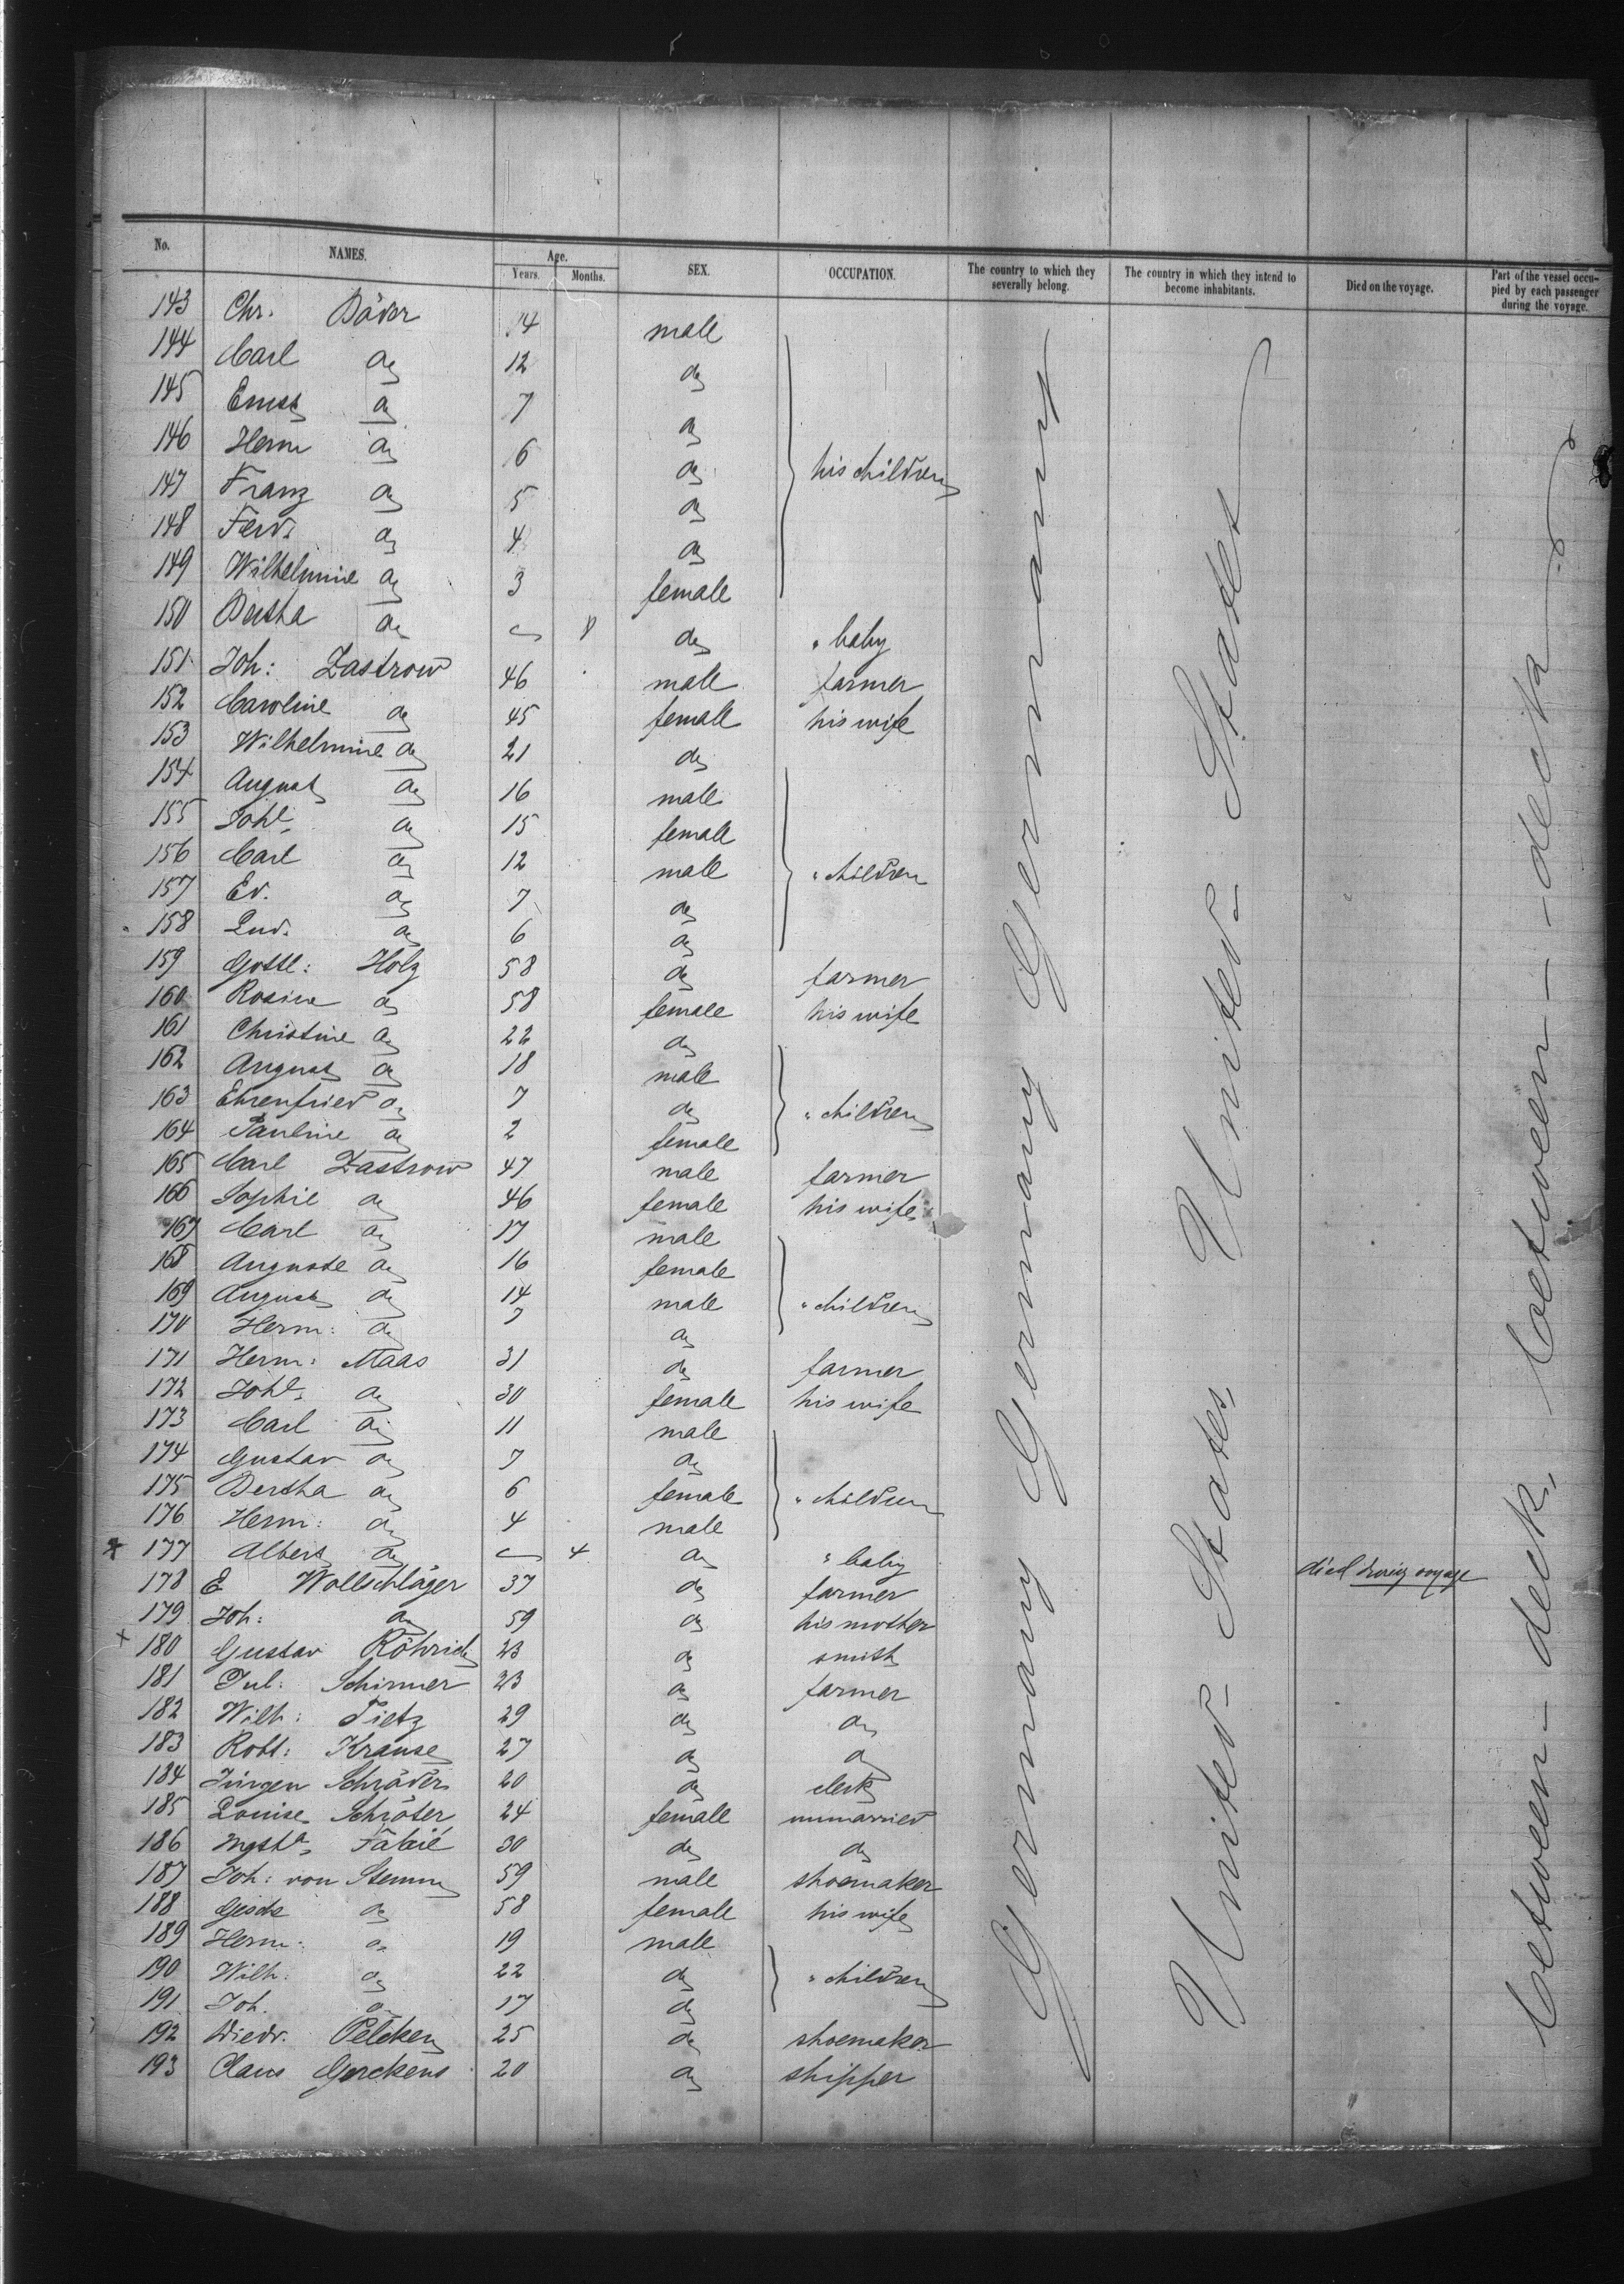 No. NAMES. Age. Years. Months. SEX. OCCUPATION. The country to which they severally belong. The country in which they intend to become inhabitants. Died on the voyage. Part of the vessel occupied by each passenger during the voyage.
143 Chr. 14 male
144 Carl do 12 do
145 Ernst do 7 do
146 Herm do 6 do his children
147 Franz do 5 do
148 Ferd. do 4 do
149 Wilhelmine do 3 female
150 Bertha do 8 do " baby
151 Joh: Zastrow 46 male farmer
152 Caroline do 45 female his wife
153 Wilhelmine do 21 do
154 August do 16 male
155 Johe. do 15 female
156 Carl do 12 male " children
157 Ed. do 7 do
158 Lud. do 6 do
159 Gottl: Holz 58 do farmer
160 Rosine do 58 female his wife
161 Christine do 22 do
162 August do 18 male
163 Ehrenfried do 7 do " children
164 Pauline do 2 female
165 Carl Zastrow 47 male farmer
166 Sophie do 46 female his wife
167 Carl do 17 male
168 Auguste do 16 female
169 August do 14 male " children
170 Herm: do 7 do
171 Herm: Maas 31 do farmer
172 Johe. do 30 female his wife
173 Carl do 11 male
174 Gustav do 7 do
175 Bertha do 6 female " children
176 Herm: do 4 male
177 Albert do 4 do " baby died during voyage
178 E Wollschläger 37 do farmer
179 Joh: do 59 do his mother
180 Gustav Röhrich 23 do smith
181 Jul: Schirmer 23 do farmer
182 Wilh: Tietz 29 do do
183 Robt: Krause 27 do do
184 Jürgen Schröder 20 do clerk
185 Louise Schröter 24 female unmarried
186 30 do do
187 Joh: von Stemm 59 male shoemaker
188 Gesche do 58 female his wife
189 Herm: do 19 male
190 Wilh: do 22 do " children
191 Joh. do 17 do
192 Diedr. Pelcken 25 do shoemaker
193 Claus Gerckens 20 do shipper
Germany Germany Germany
United States, United States
between deck, between deck